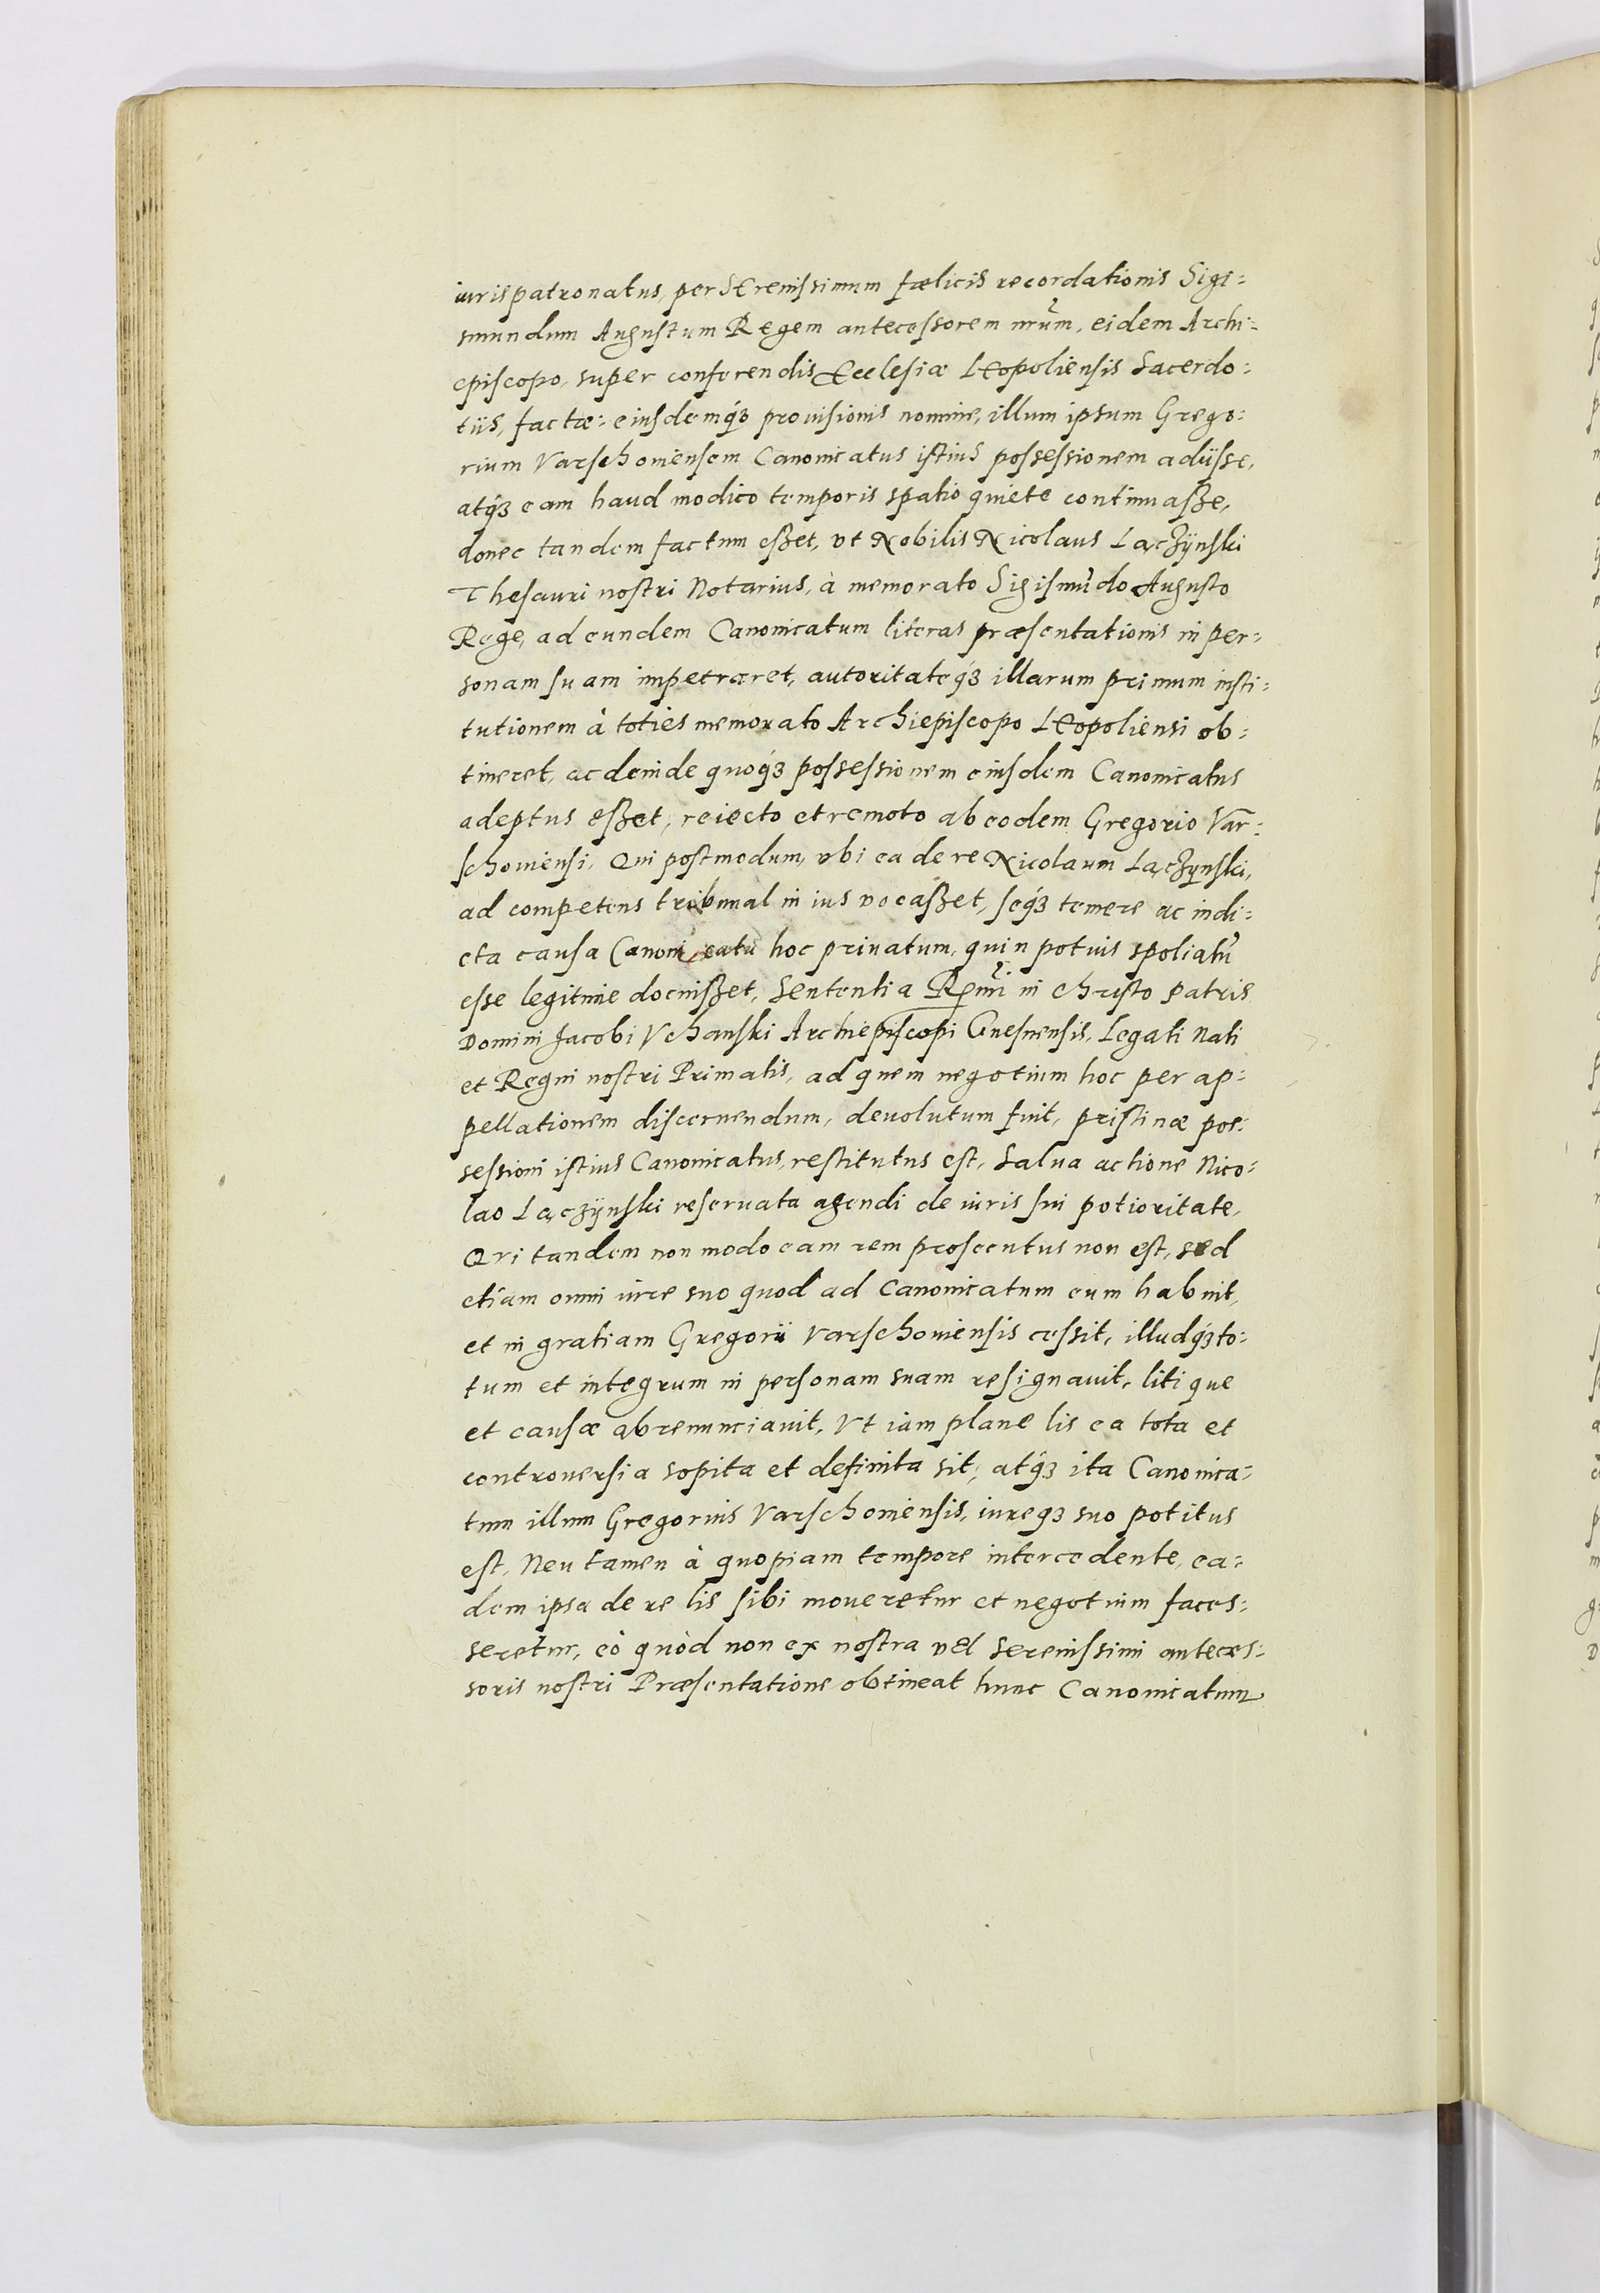 iurispatronatus, per Serenissimum fœlicis recordationis Sigis-
smundum Augustum Regem antecessorem nr̃um, eidem Archi-
episcopo, super conferendis Ecclesiæ Leopoliensis Sacerdo-
tiis, factæ: eiusdemq́ꝫ prouisionis nomine, illum ipsum Grego-
rium Varschouiensem Canonicatus istius possessionem adiisse,
atq́ꝫ eam haud modico temporis spatio quiete continuasse,
donec tandem factum esset, vt Nobilis Nicolaus Lączÿnski
Thesauri nostri Notarius, à memorato Sigismũdo Augusto
Rege, ad eundem Canonicatum literas præsentationis in per-
sonam suam impetraret, autoritateq́ꝫ illarum primum insti-
tutionem à toties memorato Archiepiscopo Leopoliensi ob-
tineret, ac deinde quoq́ꝫ possessionem eiusdem Canonicatus
adeptus esset, reiecto et remoto ab eodem Gregorio Var-
schouiensi. Qui postmodum, vbi ea de re Nicolaum Lączÿnski,
ad competens tribunal in ius vocasset, seq́ꝫ temere ac indi-
cta causa Canonicatu hoc priuatum, quin potius spoliatũ
esse legitime docuisset, Sententia Rmi in Christo Patris
Domini Jacobi Vchanski Archiepiscopi Gnesnensis, Legati Nati
et Regni nostri Primatis, ad quem negotium hoc per ap-
pellationem discernendum, deuolutum fuit, pristinæ pos-
sessioni istius Canonicatus, restitutus est, Salua actione Nico-
lao Lączÿnski reseruata agendi de iuris sui potioritate,
Qui tandem non modo eam rem prosecutus non est, sed
etiam omni iure suo quod ad Canonicatum eum habuit,
et in gratiam Gregorii Varschouiensis cessit, illudq́ꝫ to-
tum et integrum in personam suam resignauit, liti que
et causæ abrenunciauit, Vt iam plane lis ea tota et
controuersia sopita et definita sit, atq́ꝫ ita Canonica-
tum illum Gregorius Varschouiensis, iureqꝫ suo potitus
est, Neu tamen à quopiam tempore intercedente, ea-
dem ipsa de re lis sibi moueretur et negotium faces-
seretur, eò quòd non ex nostra vel Serenissimi anteces-
soris nostri Præsentatione obtineat hunc Canonicatum